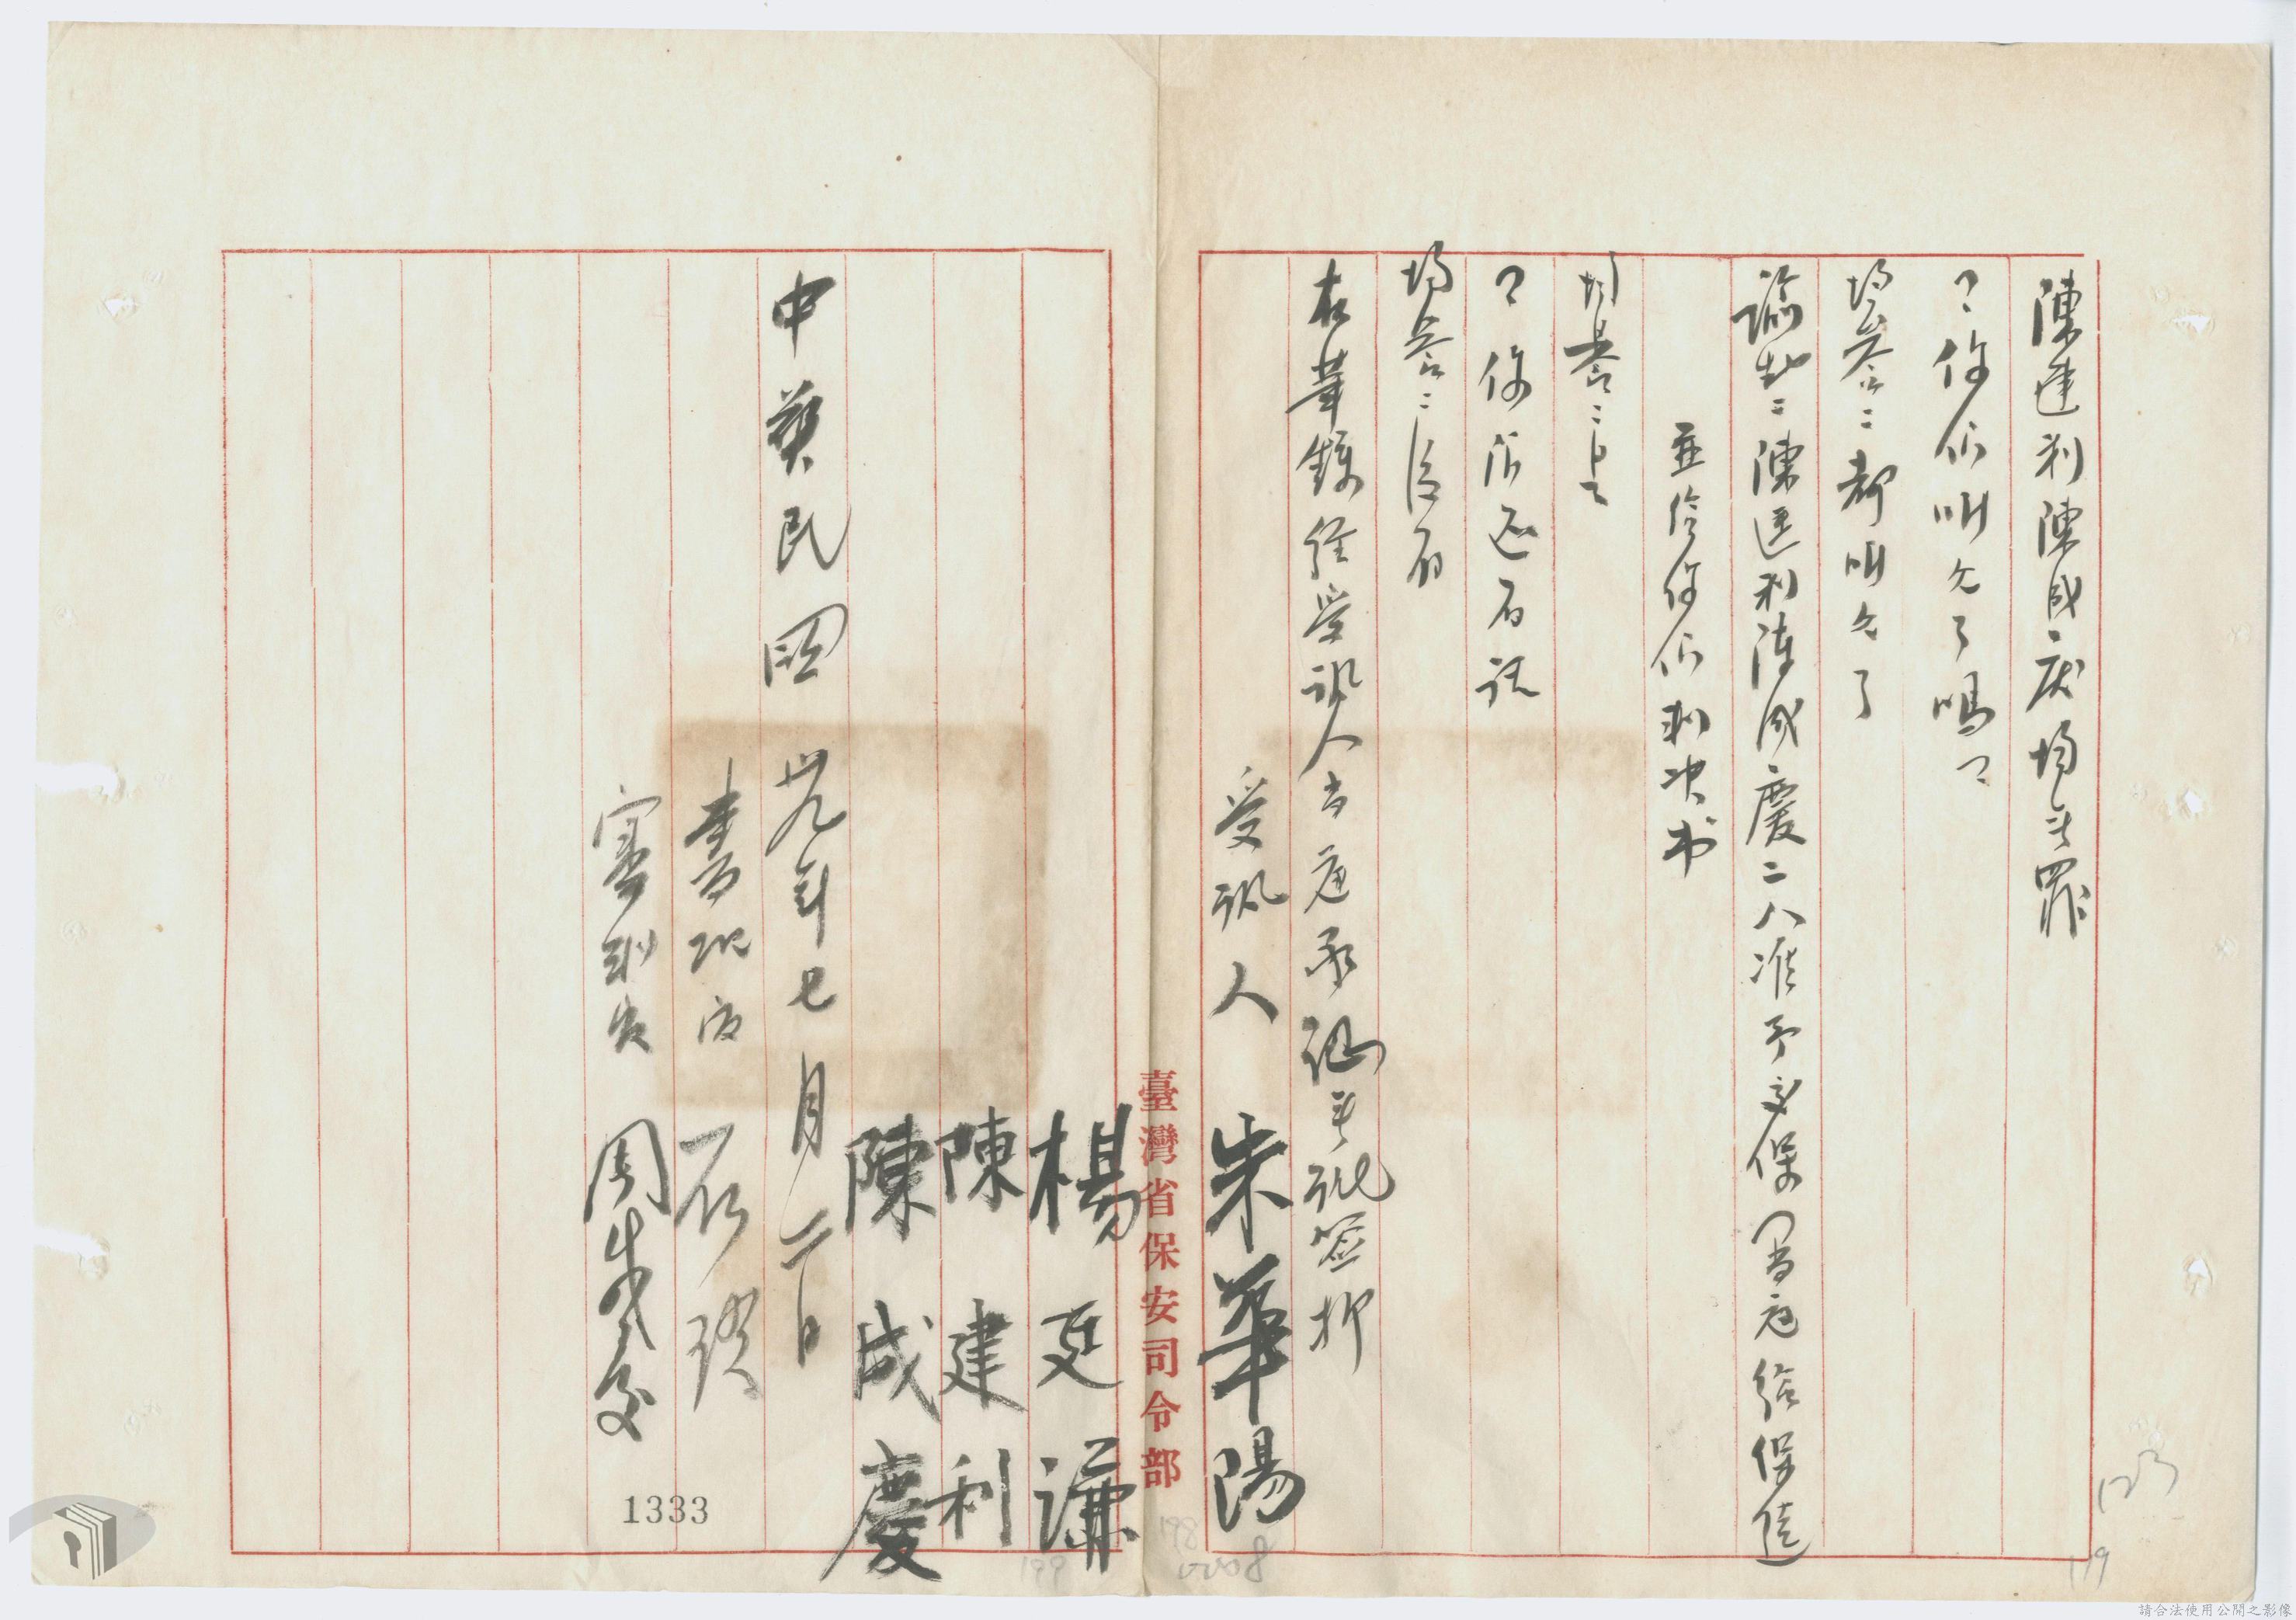 陳建利陳成慶均無罪
？你们明白了嗎？
均答：都明白了
諭知：陳建利陳成慶二人准予交保高庭給保隨
並給你们判决书
均答：是
？你们还有话
均答：没有
右筆錄經受訊人當庭承認無訛簽押
受訊人 朱華陽
楊廷謙
陳建利
陳成慶
中華民國卅九年七月二日
書記官 石璞
審判官 周咸慶
臺灣省保安司令部
1333
123
119
198
199
請合法使用公開之影像